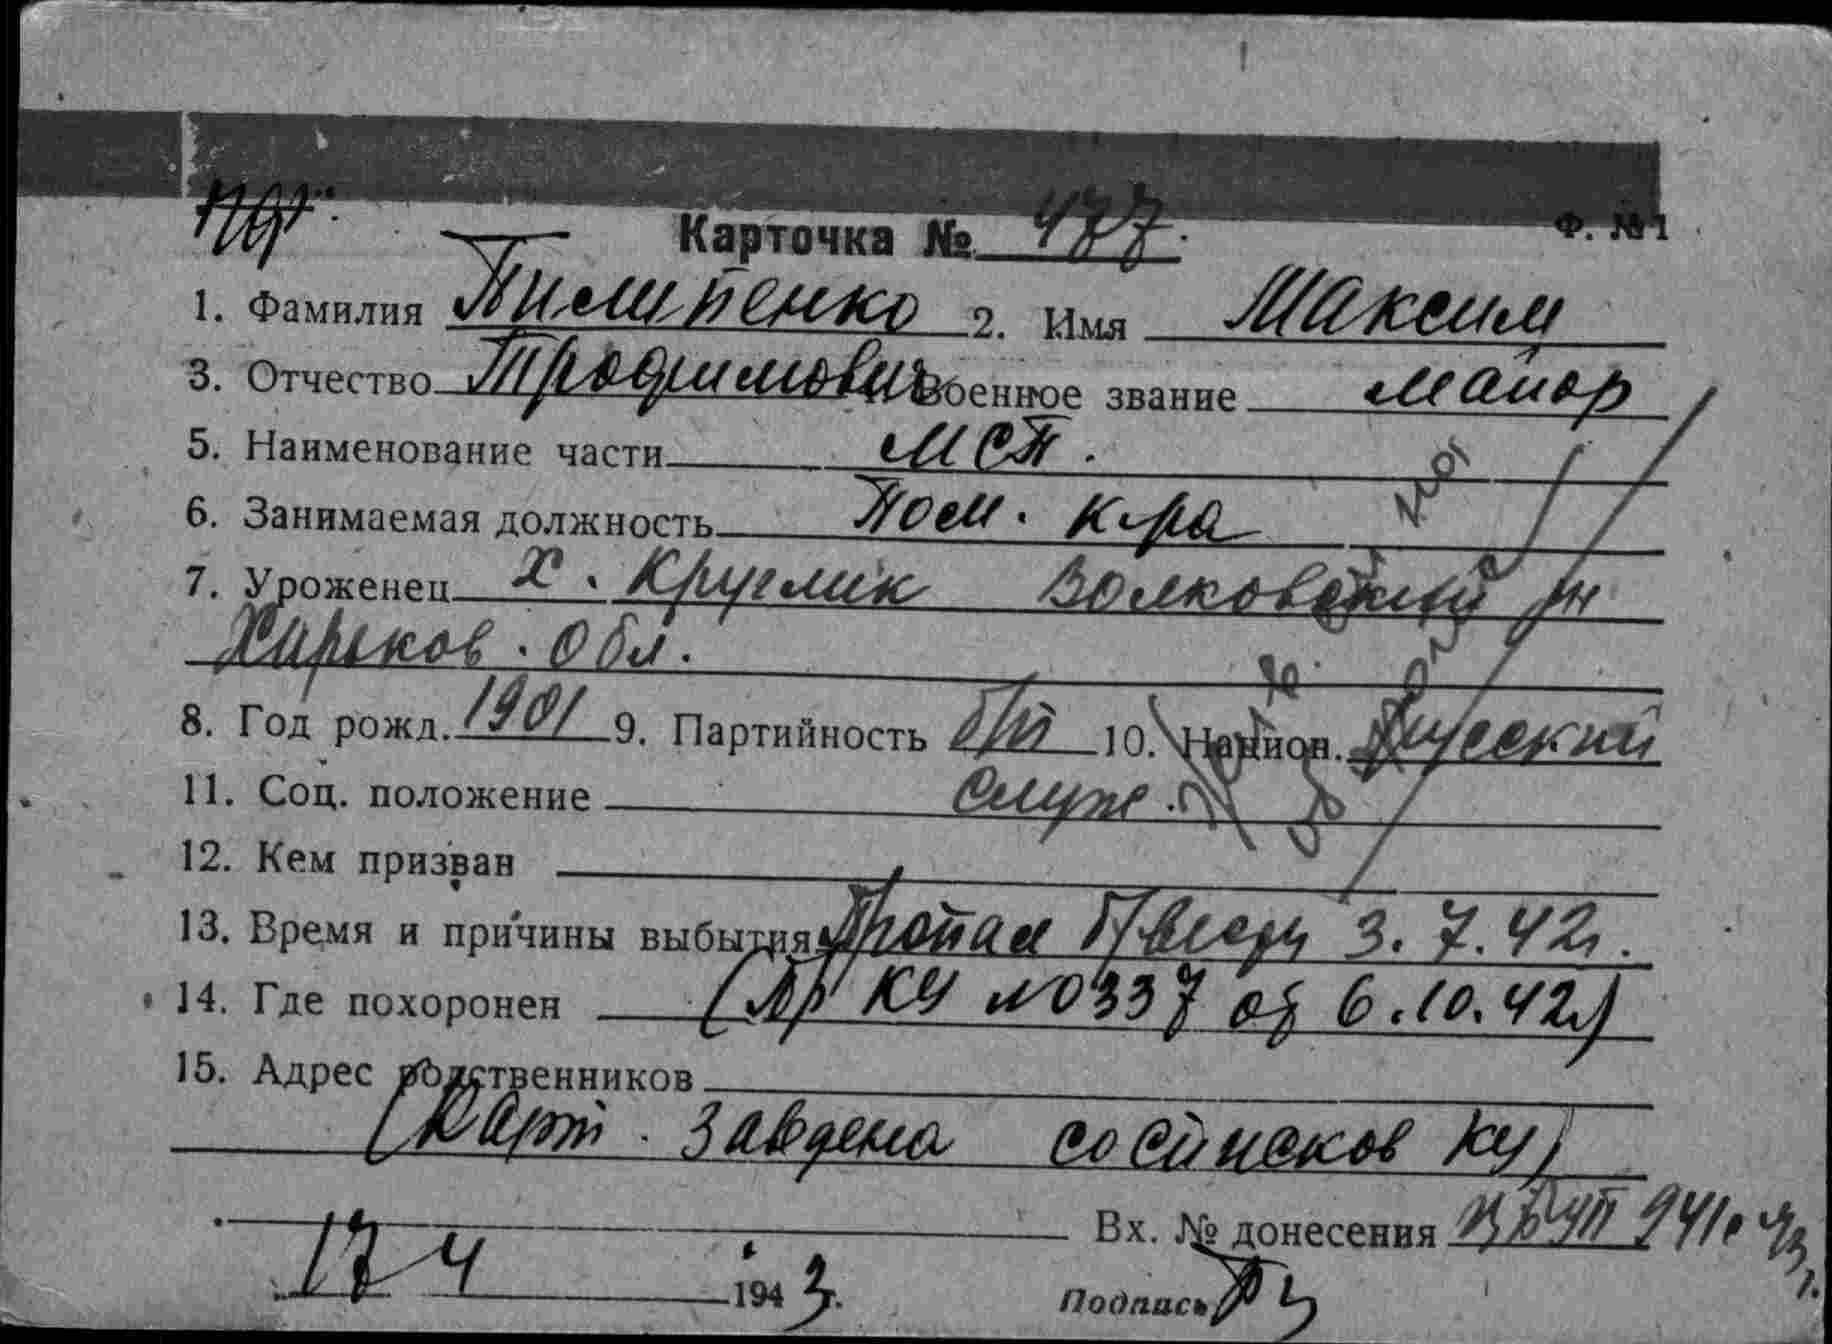 Ф. №1
Карточка № 477.
1. Фамилия Пилипенко 2. Имя Максим
3. Отчество Трофимович Военное звание майор
5. Наименование части МСП.
6. Занимаемая должность Пом. к-ра
7. Уроженец х. Круглик Волковский рн
Харьков. обл.
8. Год рожд. 1901 9. Партийность б/п 10. Национ. Русский
11. Соц. положение служ.
12. Кем призван
13. Время и причины выбытия Пропал б/вести 3.7.42г.
14. Где похоронен (Пр КУ №0337 от 6.10.42г)
15. Адрес родственников
(Карт. заведена со списков КУ)
Вх. № донесения 941с 43г.
17 4 1943г. Подпись